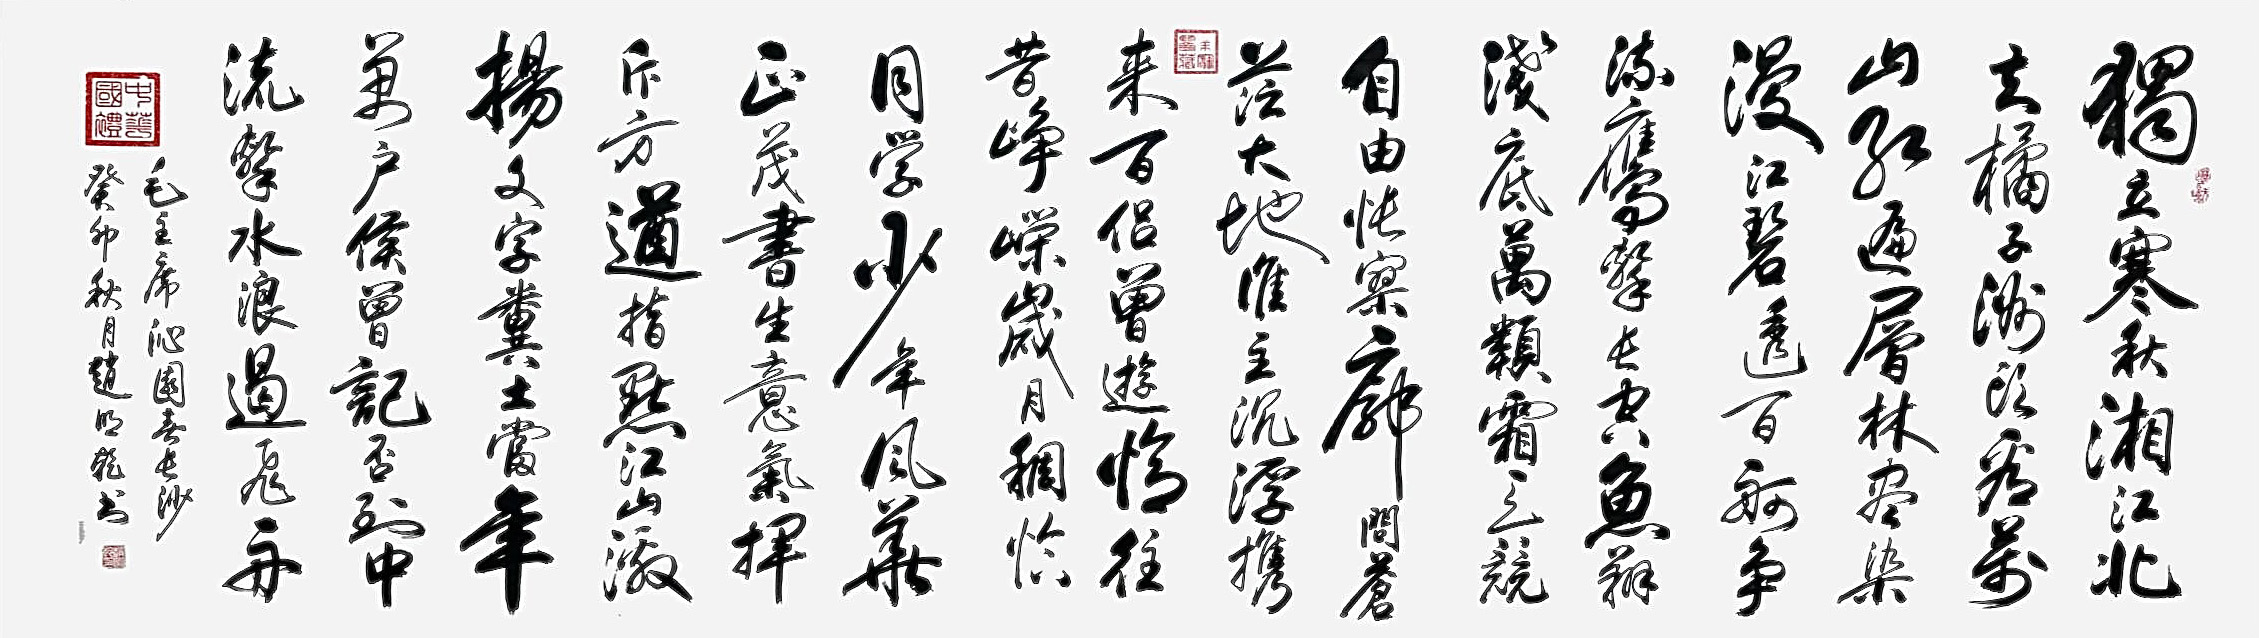 獨立寒秋湘江北
去橘子洲头看萬
山红遍層林盡染
漫江碧透百舸争
流鷹擊長空魚翔
淺底萬類霜天競
自由悵寥廓問蒼
茫大地谁主沉浮携
来百侣曾遊憶往
昔峥嵘歲月稠恰
同学少年風華
正茂書生意氣揮
斥方遒指點江山激
揚文字糞土當年
萬户侯曾記否到中
流擊水浪遏飛舟
中華國禮
毛主席沁園春長沙
癸卯秋月趙明书